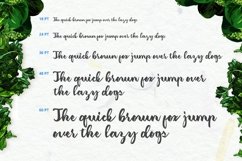 18 PT The quick brown fox jump over the lazy dogs
24 PT The quick brown fox jump over the lazy dogs
36 PT The quick brown fox jump over the lazy dogs
48 PT The quick brown fox jump over
the lazy dogs
60 PT The quick brown fox jump
over the lazy dogs